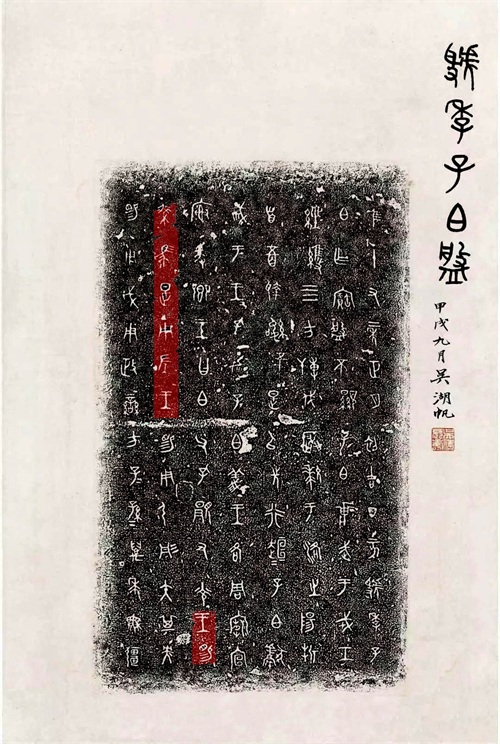 虢季子白盤
甲戌九月吳湖帆
隹十又二年正月初吉丁亥虢季子
白乍寶盤不顯子白壯武于戎工
經維四方搏伐玁狁于洛之陽折
首五百執訊五十是以先行桓桓子白獻
馘于王王孔加子白義王各周廟宣
榭爰鄉王曰白父孔顯又光王賜
乘馬是用左王賜用弓彤矢其央
賜用戉用政蠻方子子孫孫萬年無疆